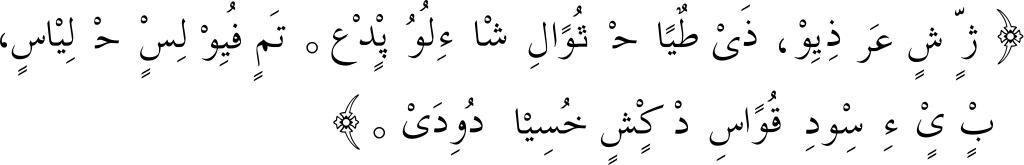 ﴿ ژٍّ شٍ عَر ذِيِوْ، ذَىْ طٌيًا حْ ثُوًالِ شْا ءِلُوُ پٍْدْع ۝ تَمٍ فُيِوْ لِسٍْ حْ لِيْاسٍ،
بٍْ يٍْ ءِ سِْودِ قُوًاسِ دْ كٍْشٍ خُسِيْا دُودَىْ ۝ ﴾